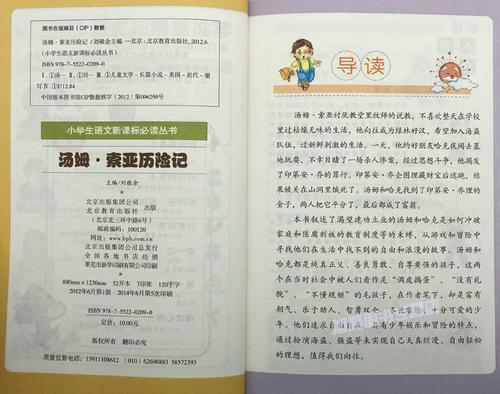 图书在版编目（CIP）数据
汤姆·索亚历险记 / 刘敬余主编. —北京：北京教育出版社，2012.6
（小学生语文新课标必读丛书）
ISBN 978-7-5522-0209-0
Ⅰ.①汤… Ⅱ.①刘… Ⅲ.①儿童文学－长篇小说－美国－近代－缩
写 Ⅳ.①I712.84
中国版本图书馆CIP数据核字（2012）第096299号
小学生语文新课标必读丛书
汤姆·索亚历险记
主编/刘敬余
北京出版集团公司
北京教育出版社
出版
（北京北三环中路6号）
邮政编码：100120
网址：www.bph.com.cn
北京出版集团公司总发行
全国各地书店经销
莱芜市新华印刷有限公司印刷
880mm×1230mm 32开本 7印张 120千字
2012年6月第1版 2014年6月第5次印刷
ISBN 978-7-5522-0209-0
定价：10.00元
版权所有 翻印必究
质量监督电话：13911108612 （010）62698883 58572393
导读
汤姆·索亚讨厌教堂里牧师的说教，不喜欢整天在学校
里过枯燥无味的生活，他向往成为绿林好汉，希望加入海盗
队伍，过新鲜刺激的生活。一天，他约好朋友哈克去墓
地玩耍，不幸目睹了一场杀人惨案，经过思想斗争，他揭发
了印第安·乔的罪行。印第安·乔企图埋藏财宝后逃跑，结
果被关在山洞里饿死了。汤姆和哈克找到了印第安·乔埋的
金子，两人把它平分了，最后都成了富翁。
本书叙述了渴望建功立业的汤姆和哈克是如何冲破
家庭和陈腐刻板的教育制度等的束缚，从游戏和冒险中
寻找他们在生活中找不到的自由和浪漫的故事。汤姆和
哈克都是纯真正义、善良勇敢、自尊要强的孩子，这两
个在当时社会中被人们看作是“调皮捣蛋”、“没有礼
貌”、“不懂规矩”的毛孩子，在作者笔下，却是富有
朝气、乐于助人、智勇双全、不畏艰险、十分可爱的少
年。他们追求自由自在、具有少年娱乐和冒险的特点，
通过扮演海盗、强盗等来实现自己天真烂漫、自由轻松
的理想，值得我们向往。